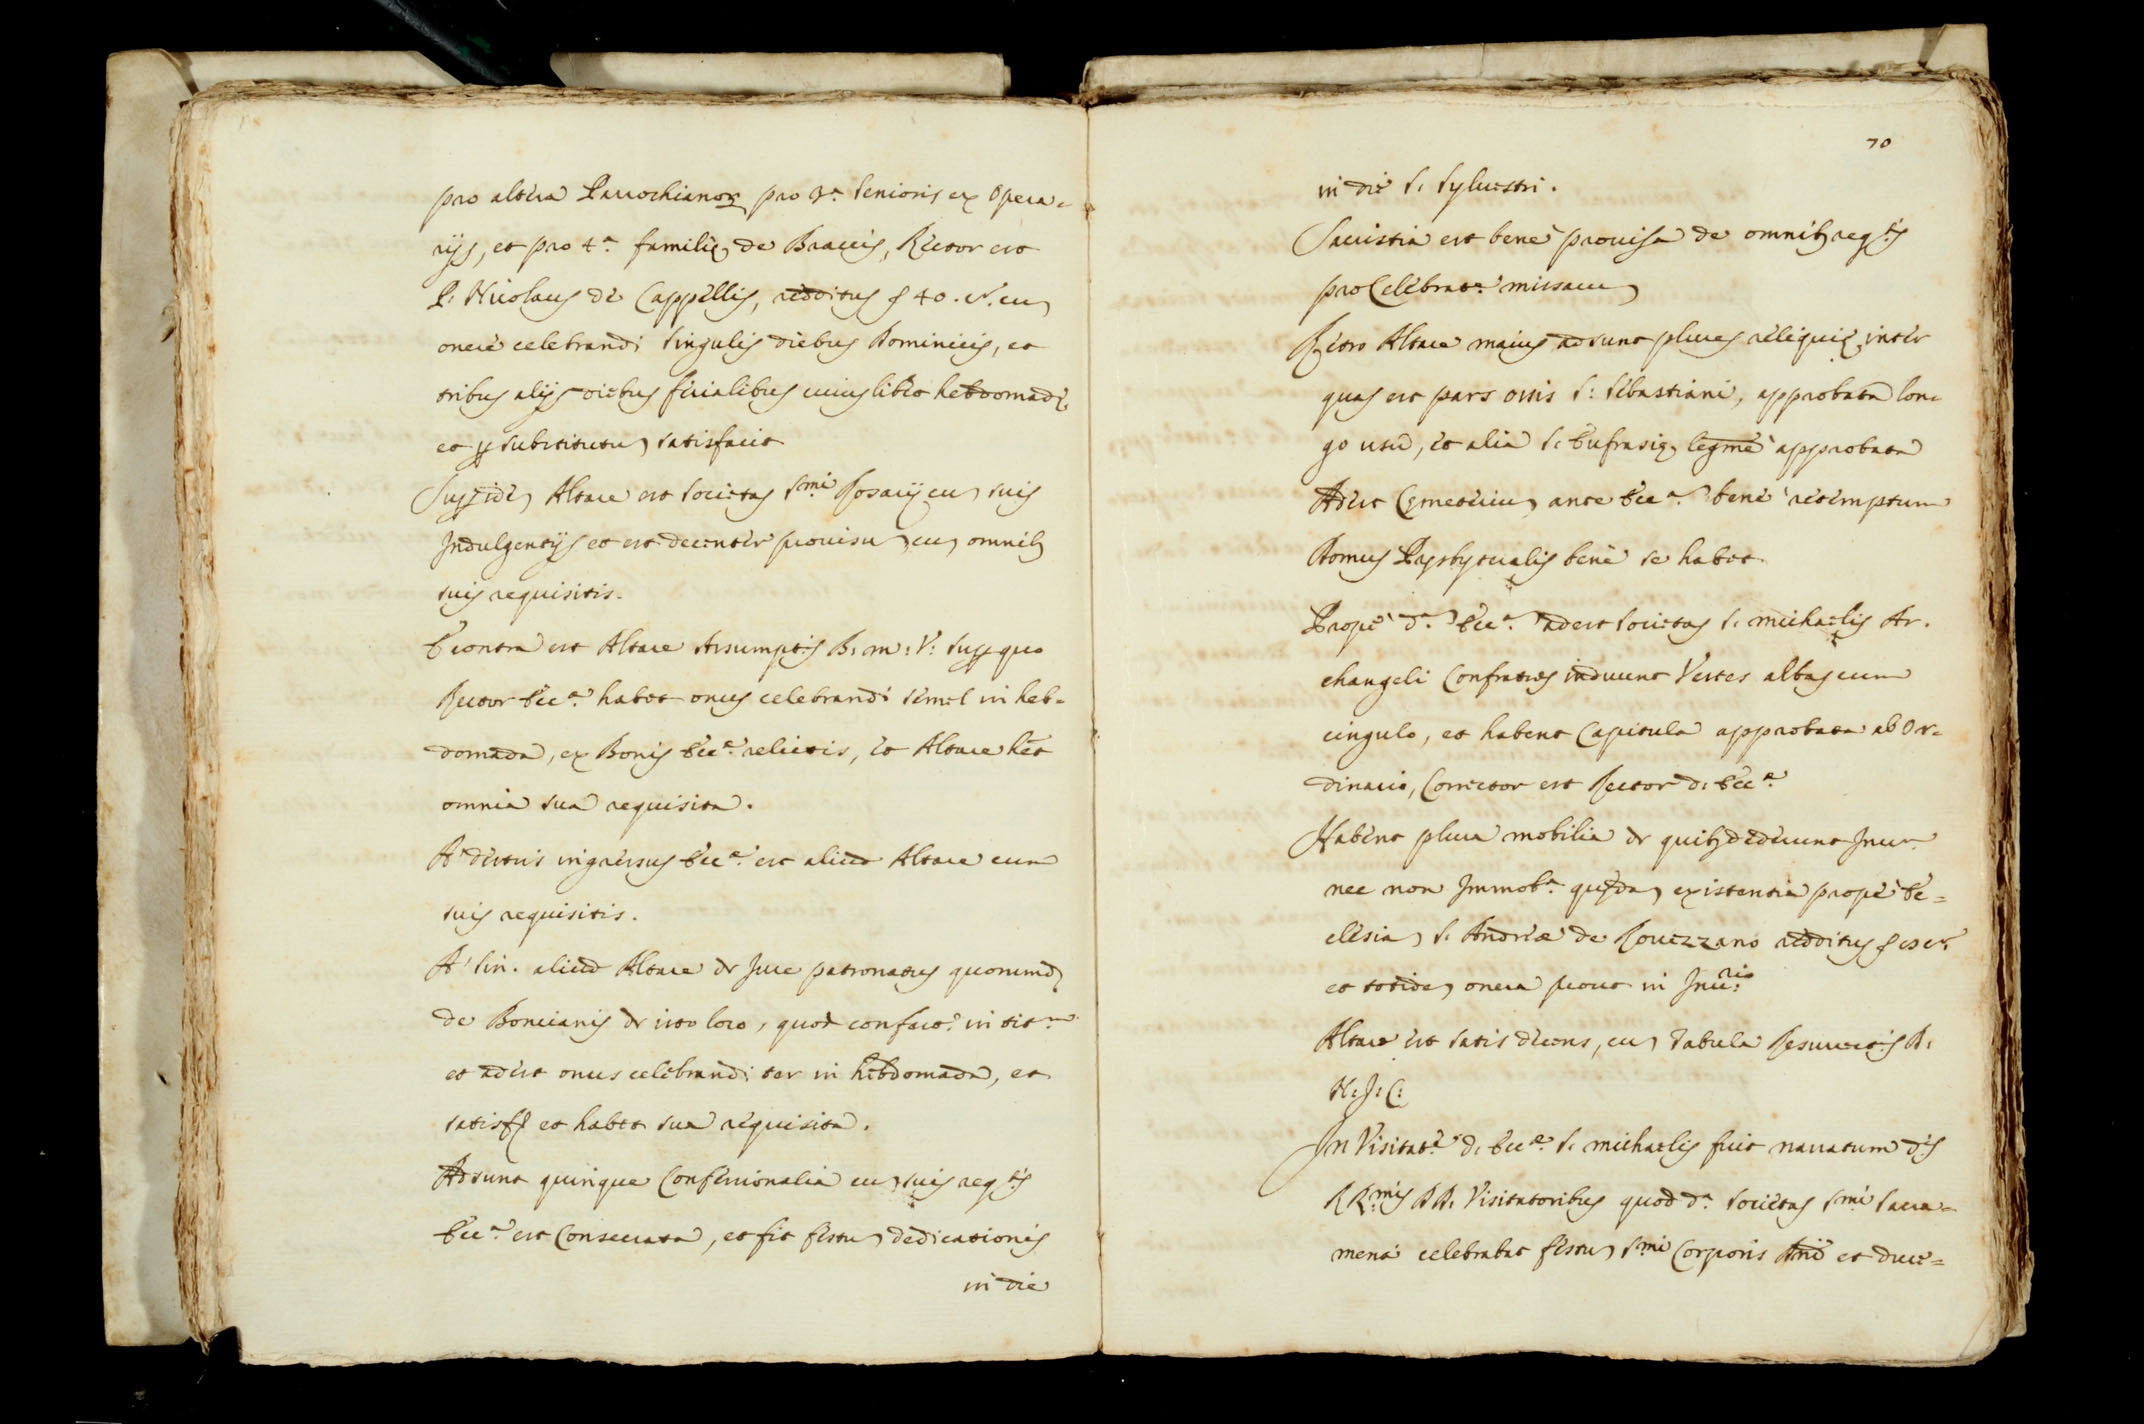 pro altera Parrochianoꝝ pro 3.ᵃ Senioris ex Opera-
rijs, et pro 4.ᵃ familię de Braccis, Rector est
P. Nicolaus de Cappellis, redditus 40. cu,
onere celebrandi singulis diebus Dominicis, et
tribus alijs diebus ferialibus cuiuslibet hebdomadę,
et ꝑ substitutu, satisfacit
Altare est societas S.mi Rosarij cu, suis
Indulgentijs et est decenter prouisu, cu, omnibꝫ
suis requisitis.
E contra est Altare Assumpt.s B. M: V: sup quo
Rector Ecc.ᵉ habet onus celebrandi semel in heb-
domada, ex Bonis Ecc.ᵉ relictis, et Altare het
omnia sua requisita.
A' dextris ingressus Ecc.ᵉ est aliud Altare cum
suis requisitis.
A' sin. aliud Altare de Jure patronatus quorumd,
de Bonciani​s de isto loco, quod confert.ʳ in tit.m
et adest onus celebrandi ter in hebdomada, et
satisf. et habet sua requisita.
Adsunt quinque Confessionalia cu, suis req.tis
Ecc.ᵃ est Consecrata, et fit festu, dedicationis
in die
70
in die S. Syluestri.
Sacristia est bene prouisa de omnibꝫ req.tis
pro Celebrat.ᵉ missaru,
Retro Altare maius adsunt plures reliquię, inter
quas est pars ossis S: Sebastiani, approbata lon-
go usu, et alia S. Eufrasię, legme approbata
Adest Cęmeteriu, ante Ecc.ᵃ bene retemptum
Domus Prysbyteralis bene se habet
Prope d.ᵃ Ecc.ᵃ adest societas S. Michaelis Ar-
changeli Confratres induunt Vestes albas cum
cingulo, et habent Capitula approbata ab Or-
dinario, Corrector est Rector d. Ecc.ᵉ
Habent plura mobilia de quibꝫ dederunt Inu.
nec non Immob.ᵃ quędā, existentia prope Ec=
clesia, S. Andreæ de Rouezzano redditus
et totide, onera prout in Inu:rio
Altare est satis decens, cu, Tabula Resurrect.s D.
N. J. C:
In Visitat.ᵉ d. Ecc.ᵉ S. Michaelis fuit narratum d.s
RR.mis DD. Visitatoribus quod d.ᵃ societas S.mi Sacra-
menti celebrabat festu, S.mi Corporis Xpi et duce=